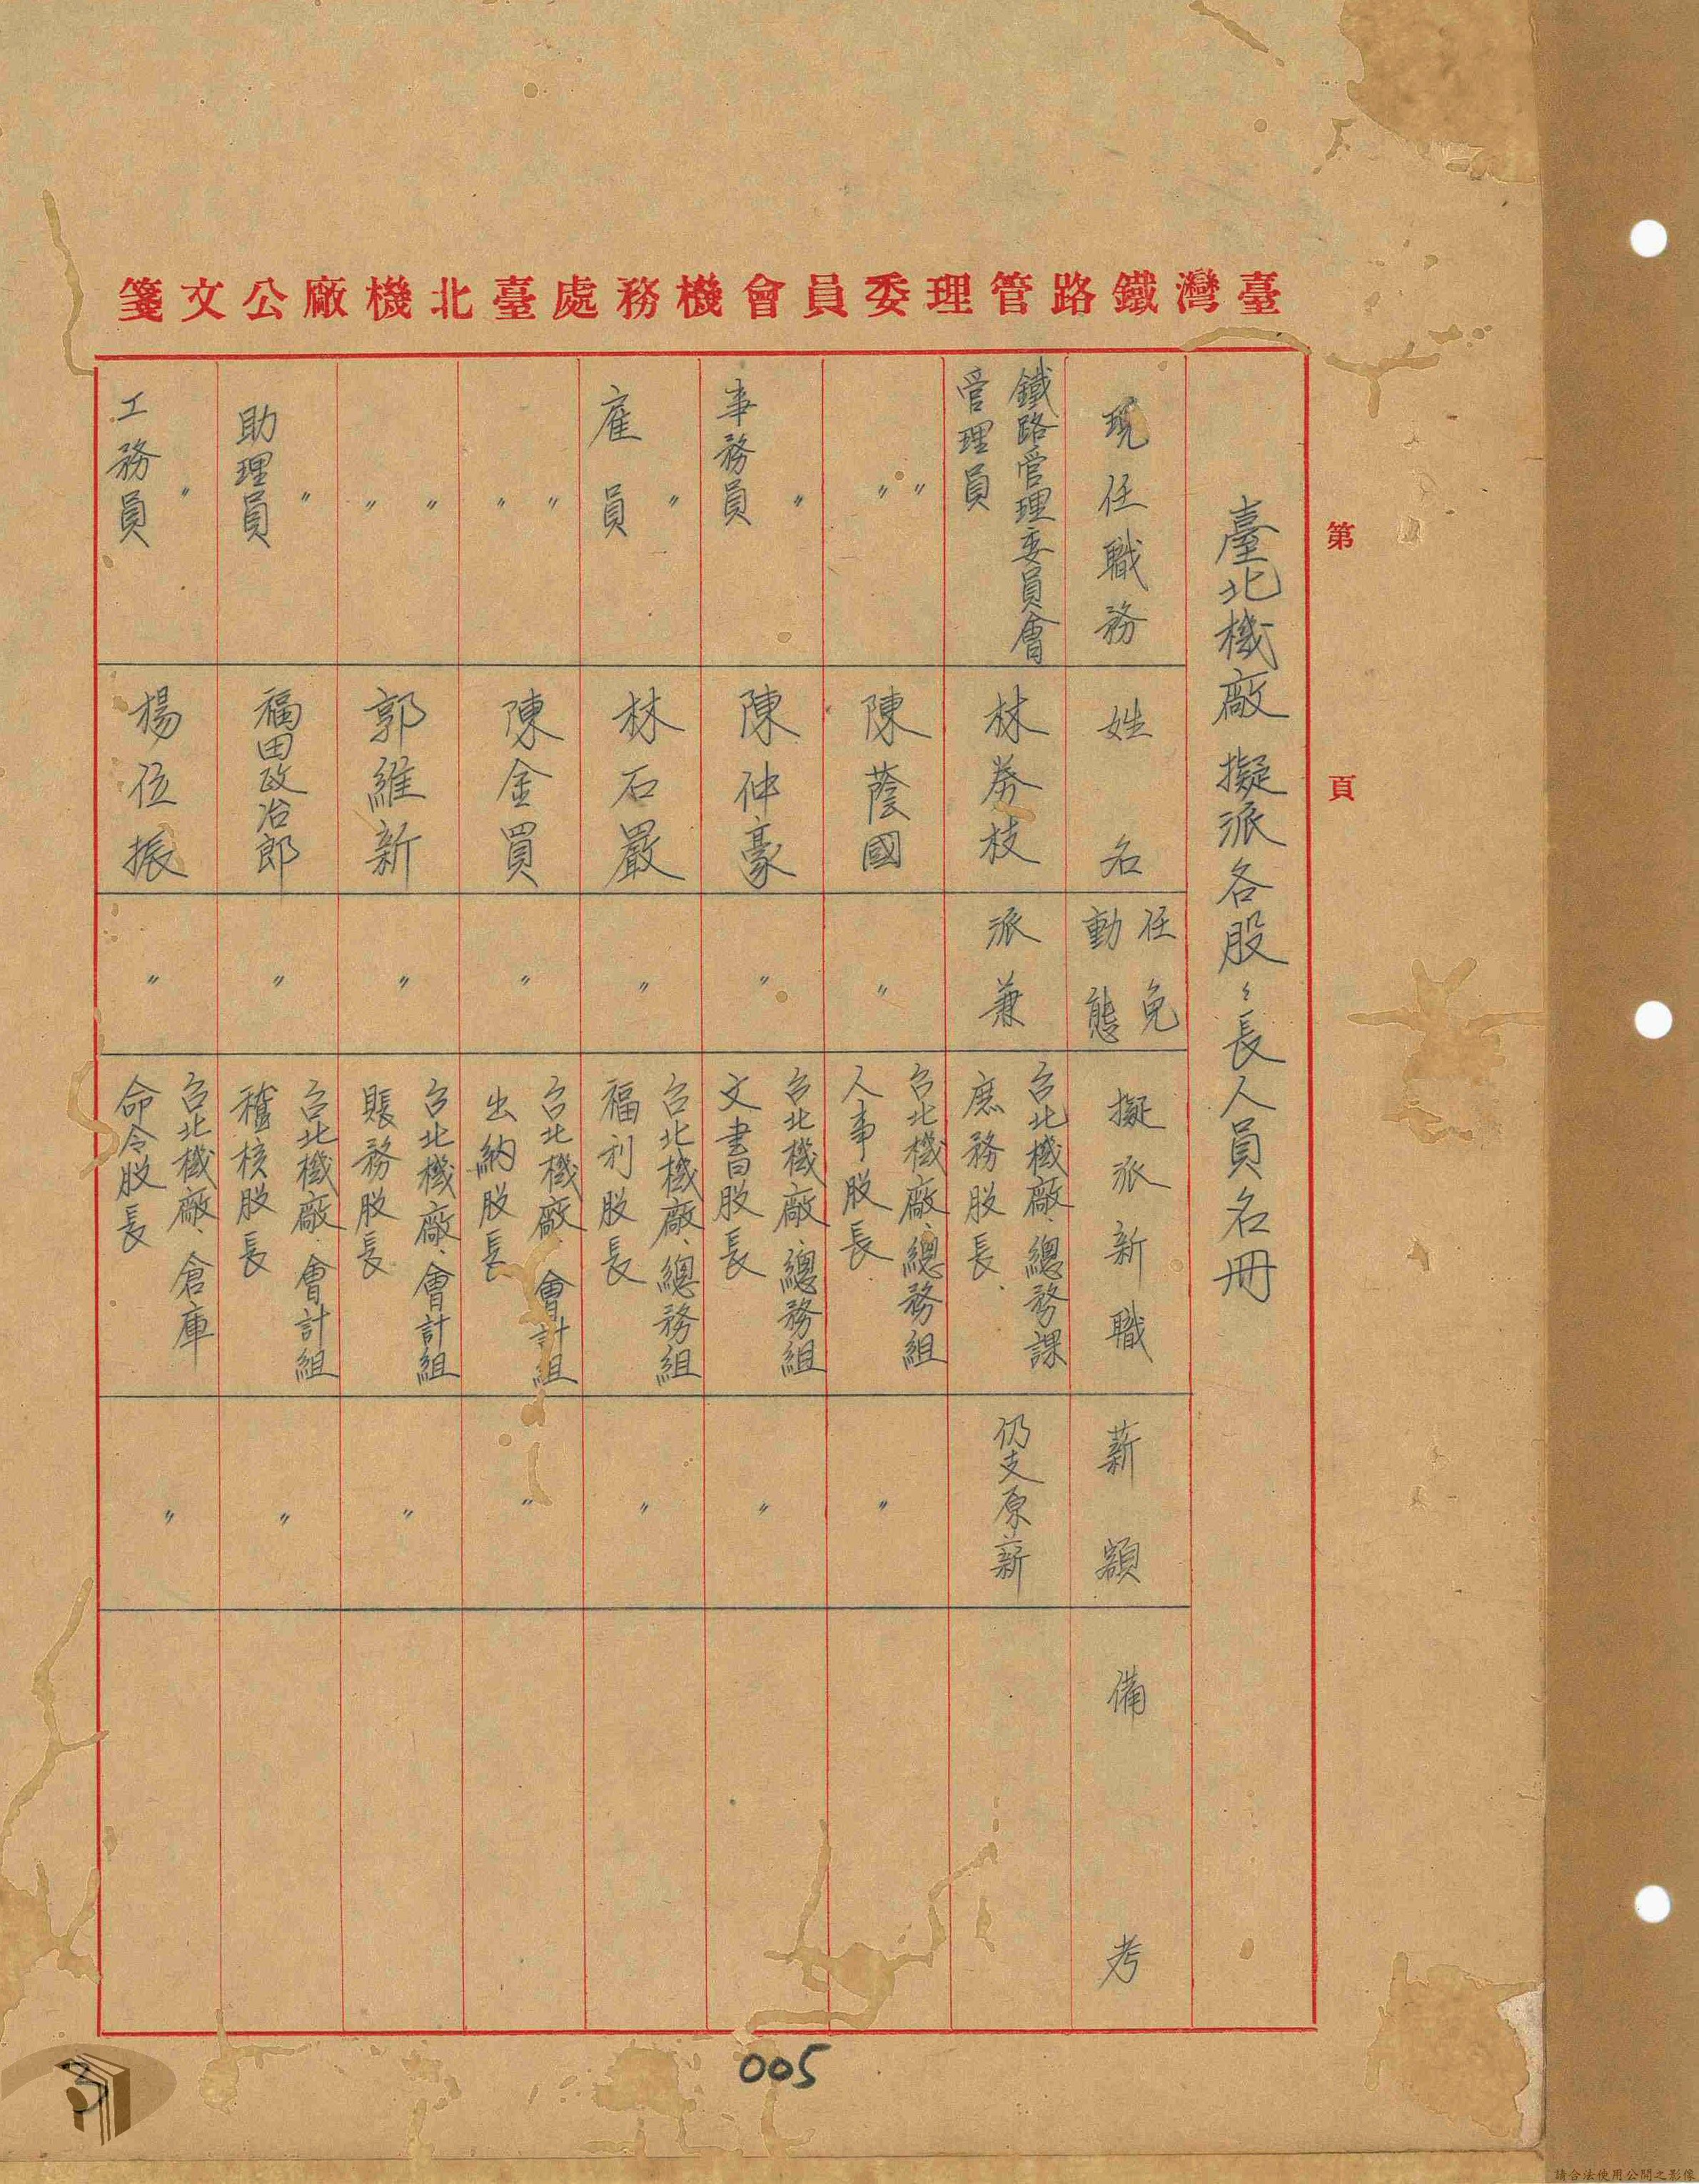 臺灣鐵路管理委員會機務處臺北機廠公文箋
第 頁
臺北機廠擬派各股〻長人員名冊
現任職務 姓名 任免動態 擬派新職 薪額 備考
鐵路管理委員會管理員 林 枝 派兼 台北機廠、總務課庶務股長 仍支原薪
〃〃 陳蔭國 〃 台北機廠、總務組人事股長 〃
〃事務員 陳仲豪 〃 台北機廠、總務組文書股長 〃
〃雇員 林石嚴 〃 台北機廠、總務組福利股長 〃
〃〃 陳金買 〃 台北機廠、會計組出納股長 〃
〃〃 郭維新 〃 台北機廠、會計組賬務股長 〃
〃助理員 福田政治郎 〃 台北機廠、會計組稽核股長 〃
〃工務員 楊位振 〃 台北機廠、倉庫命令股長 〃
005
3
請合法使用公開之影像